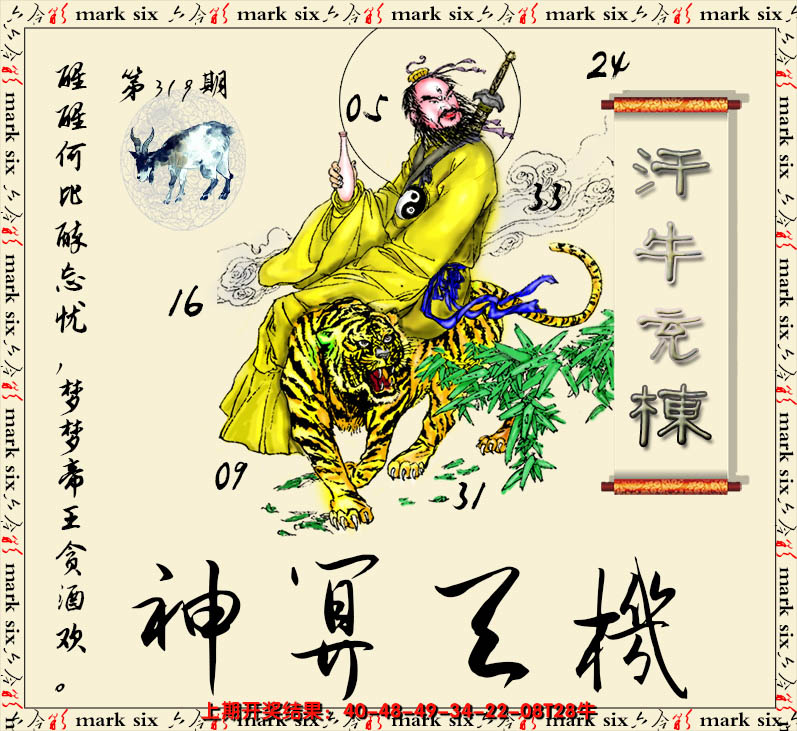 mark six 六合彩 mark six 六合彩 mark six 六合彩 mark six 六合彩 mark six
第319期
醒醒何比醉忘忧,梦梦帝王贪酒欢。
24
05
33
16
09
31
汗牛充棟
神算天機
上期开奖结果:40-48-49-34-22-08T28牛
六合彩 mark six 六合彩 mark six 六合彩 mark six 六合彩 mark six 六合彩
mark six 六合彩 mark six 六合彩 mark six 六合彩 mark six
mark six 六合彩 mark six 六合彩 mark six 六合彩 mark six